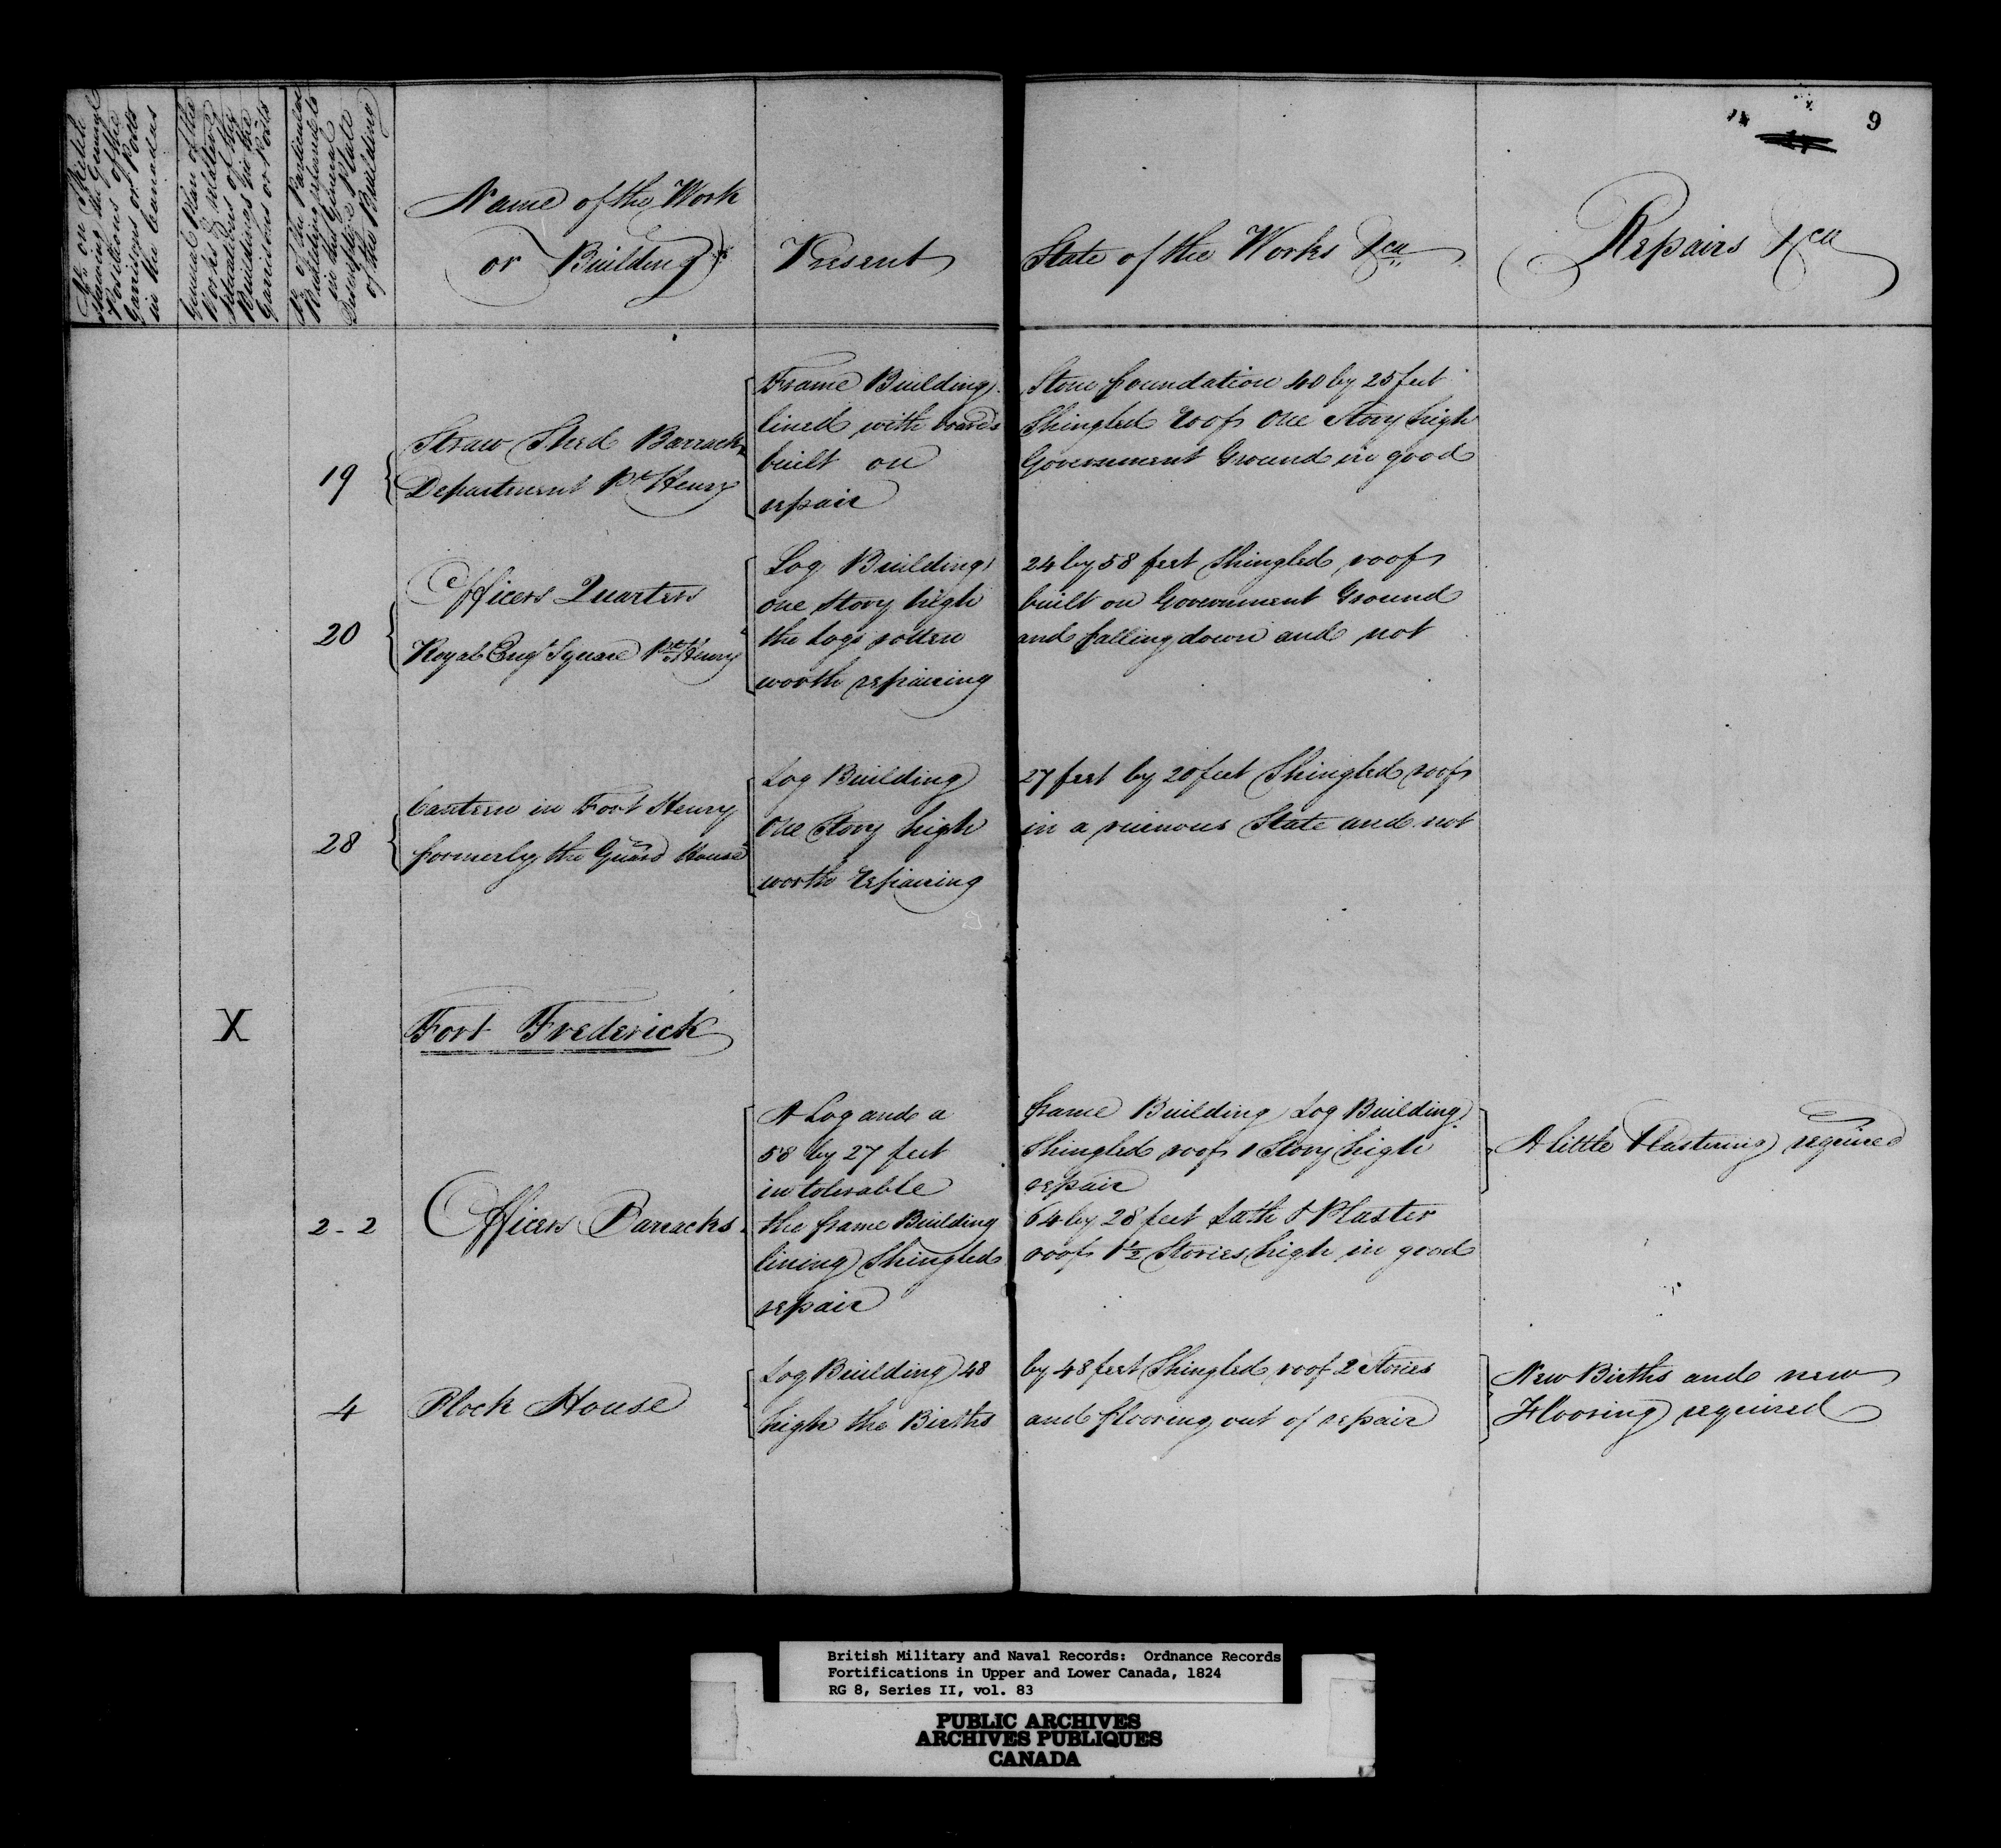 No. on Sketch
shewing the General
Positions of the
Garrisons or Posts
in the Canadas
General Plan of the
Works & relative
situations of the
Buildings in the
Garrisons or Posts
No. of the Particular
Building referred to
in the General
Descriptive Plate
of the Building
Name of the Work
or Building
Present State of the Works &ca
Repairs &ca
9
19
Straw Shed Barrack
Department Pt. Henry
Frame Building Stone foundation 40 by 25 feet
lined with boards Shingled roof One Story high
built on Government Ground in good
repair
20
Officers Quarters
Royal Engrs Square Pt. Henry
Log Building 24 by 58 feet Shingled roof
one story high built on Government Ground
the Logs rotten and falling down and not
worth repairing
28
Canteen in Fort Henry
formerly the Guard House
Log Building 27 feet by 20 feet Shingled roof
One Story high in a ruinous State and not
worth repairing
X
Fort Frederick
2 - 2
Officers Barracks
A Log and a frame Building Log Building
58 by 27 feet Shingled roof 1 Story high
in tolerable repair
the frame Building 64 by 28 feet Lath & Plaster
lining Shingled roof 1½ Stories high in good
repair
A little Plastering required
4
Block House
Log Building 48 by 48 feet Shingled roof 2 Stories
high the Births and flooring out of repair
New Births and new
Flooring required
British Military and Naval Records: Ordnance Records
Fortifications in Upper and Lower Canada, 1824
RG 8, Series II, vol. 83
PUBLIC ARCHIVES
ARCHIVES PUBLIQUES
CANADA